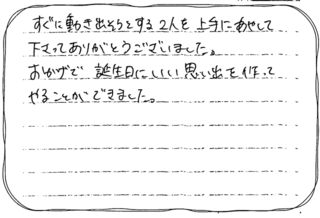 すぐに動き出そうとする2人を上手にあやして
下さってありがとうございました。
おかげで誕生日にいい思い出を作って
やることができました。